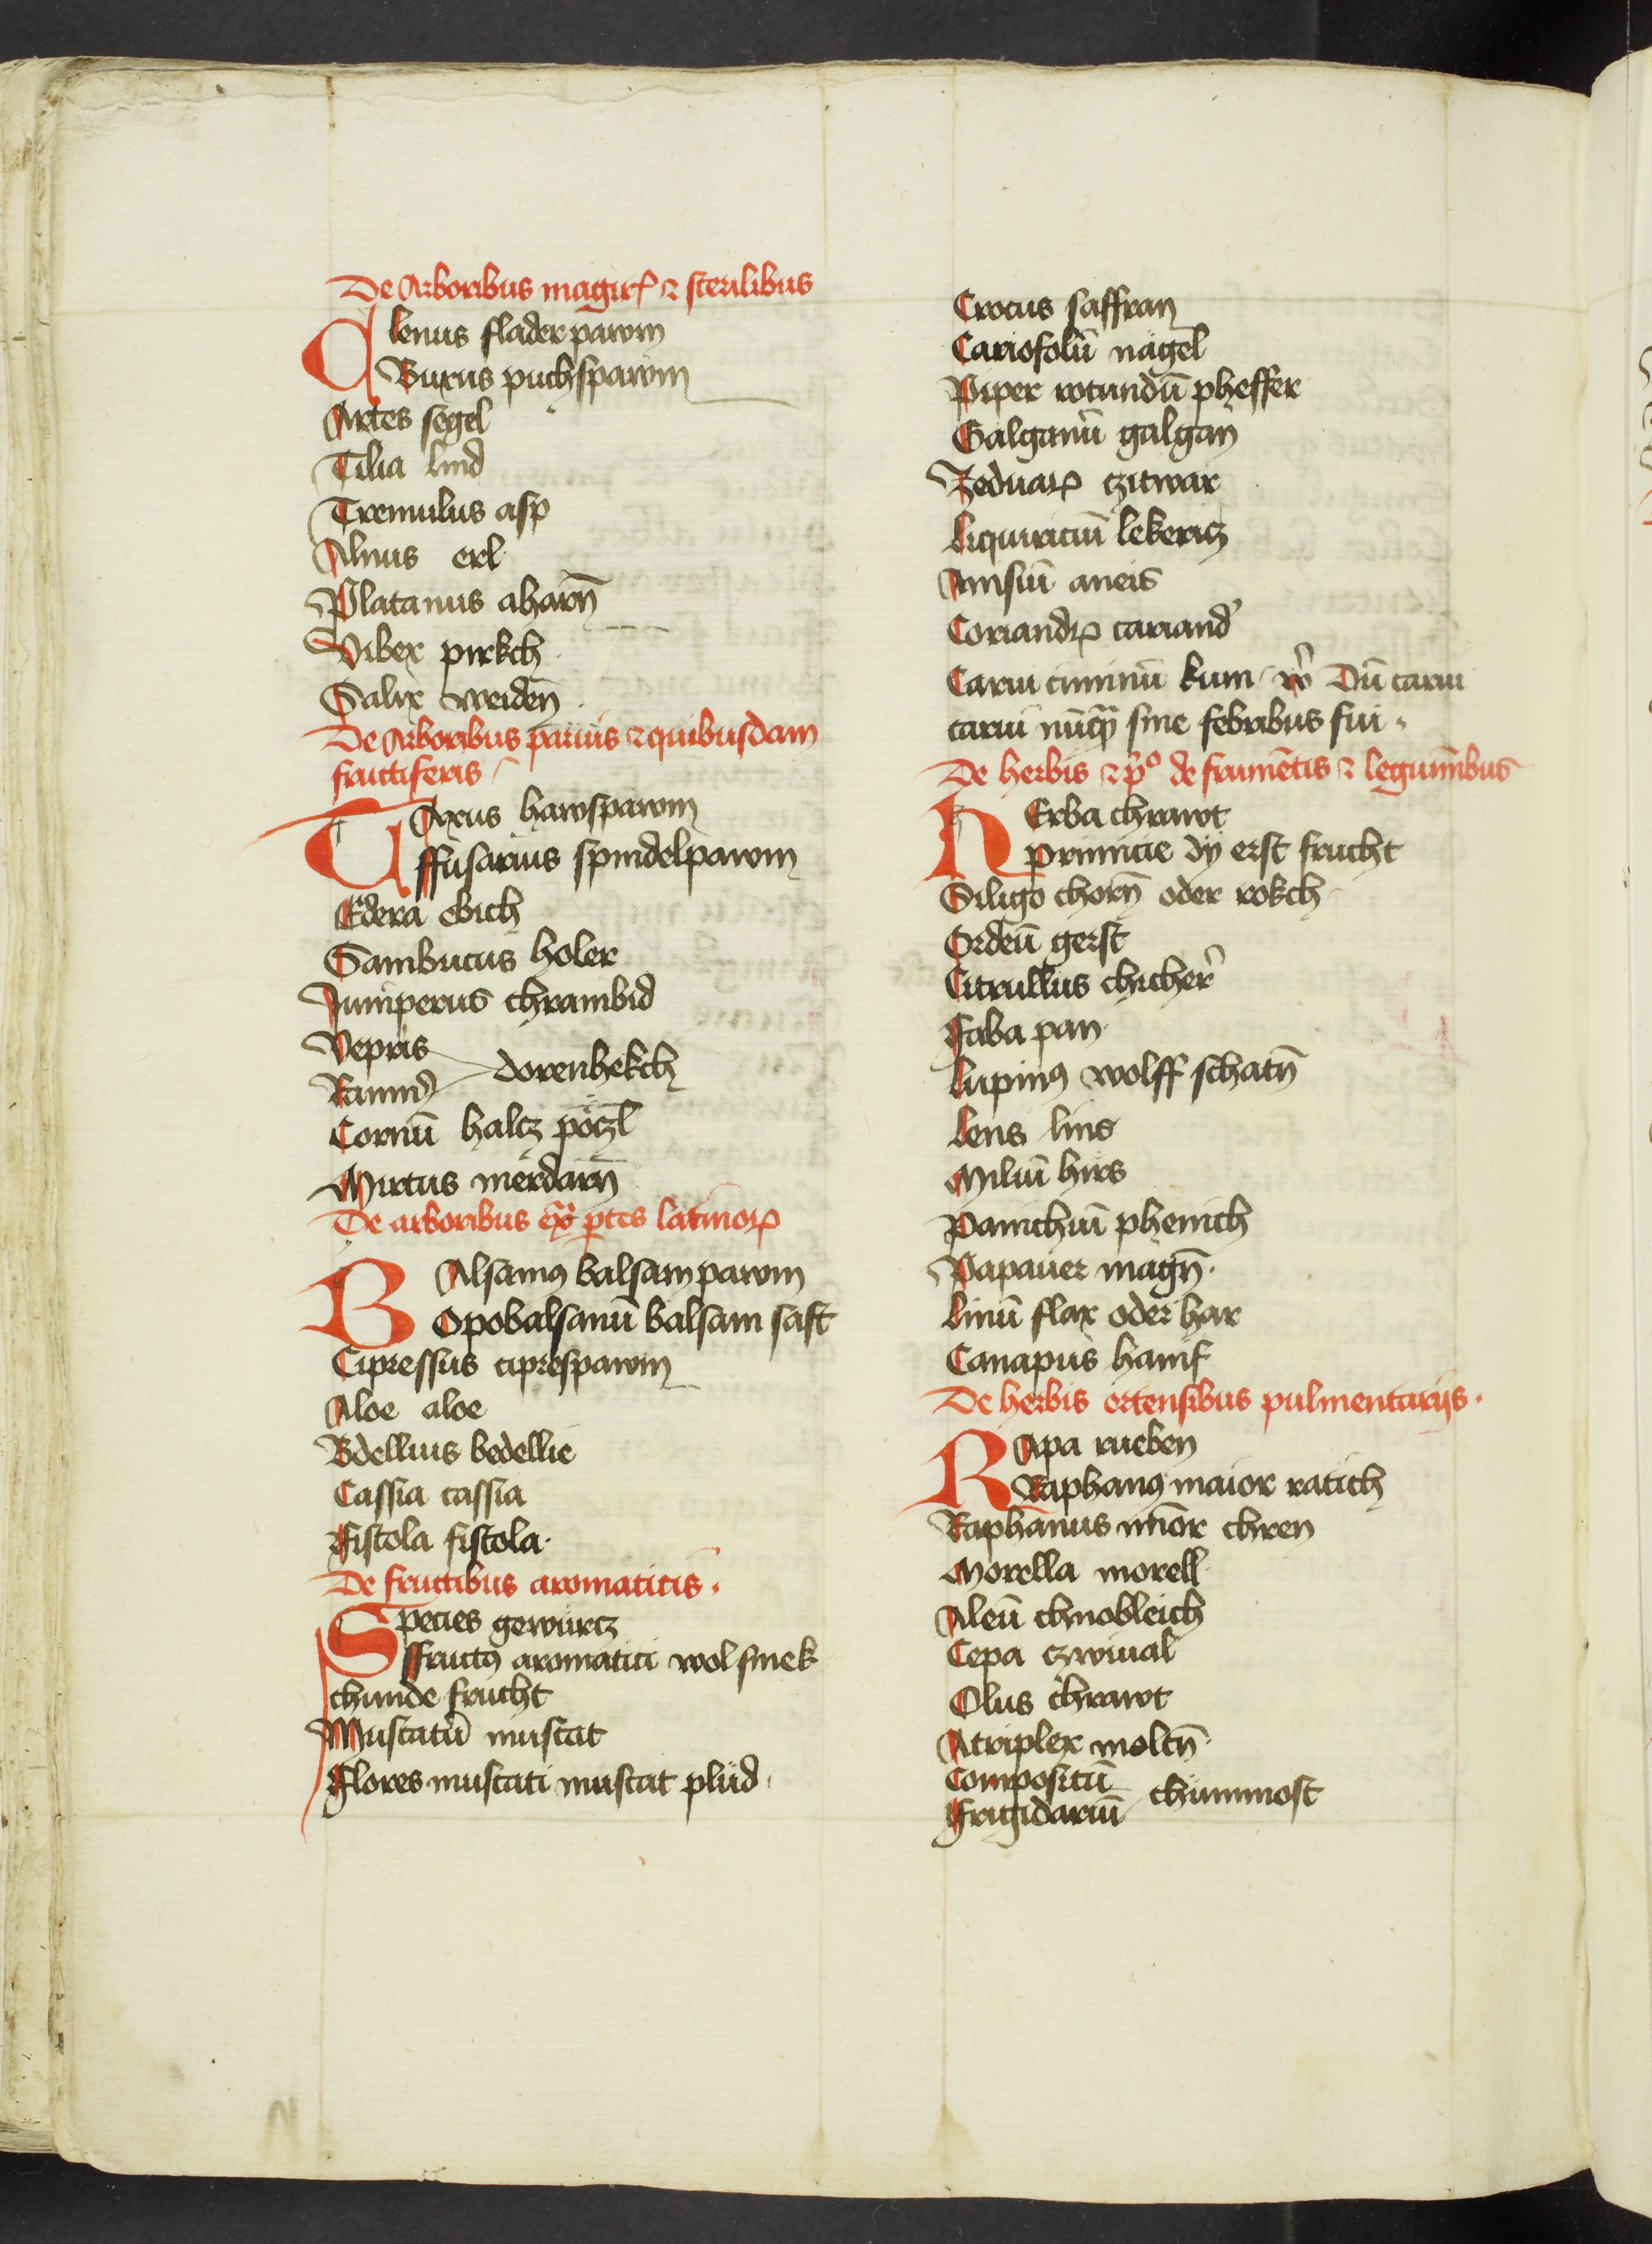 De Arboribus magis et sterilibus
Alenus flader pawm
Buxus puchspawm
Artes segel
Tilia lind
Tremulus asp
Alnus erl
Platanus aharñ
Vibex pirkch
Salix weideñ
De Arboribus paruis et quibusdam
fructiferis
TAxus hawspawm
ffusarius spindelpawm
Edera ebich
Sambucus holer
Juniperus chrambid
Vepris
dorenhekch
Cornū halcz pöczl
Mirtus merdarñ
De arboribus ex ptes latinorꝝ
BAlsamꝰ balsam pawm
Opobalsamū balsam saft
Cipressus ciprespawm
Aloe aloe
Bdellius bedellie
Cassia cassia
Fistola fistola.
De fructibus aromaticis.
Species gewürcz
ffructꝰ aromatici wol smek
chunde frucht
Muscatū muscat
Flores muscati muscat plüd.
Crocus saffran
Cariofolū nagel
Piper rotundū pheffer
Galganū galgan
Zeduarꝝ czitwar
Liquiriciū lekericz
Anisiū aneis
Coriandrꝝ coriand
Carui ciminū kum Dū carui
carui nūqꝫ sine febribus fui.
De herbis et po de frumētis et leguminibus
HErba chrawt
Primicie dy erst frucht
Siligo chorñ oder rokch
Ordeū gerst
Citrullus chicher
Faba pan
Lupinꝰ wolff schatñ
Lens lins
Miliū hirs
Panichiū phenich
Papauer magñ.
Linū flax oder har
Canapus hanif
De herbis ortensibus pulmentarijs.
RApa rueben
Raphanꝰ maior ratich
Raphanus minor chren
Morella morell
Aleū chnobleich
Cepa czwiual
Olus chrawt
Atriplex moltñ
Compositū
Frigidariū chummost